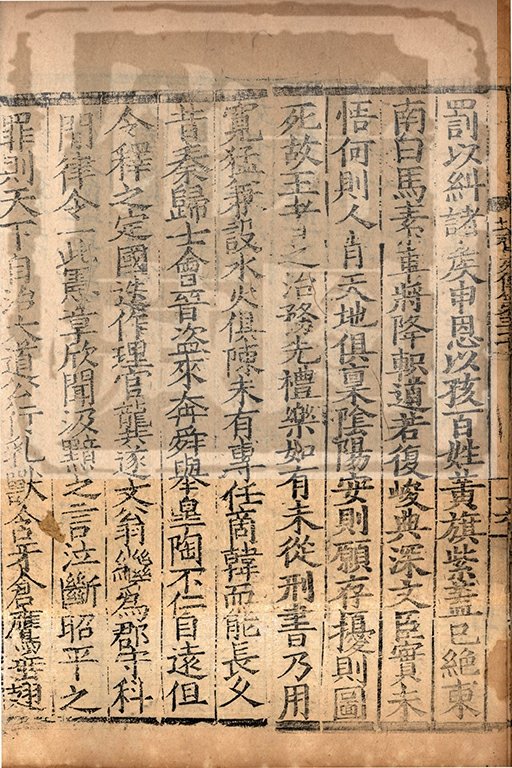 罰以糾諸矦申恩以孩百姓黃旗紫蓋已絕東
南白馬素車將降軹道若復峻典深文臣實未
悟何則人肖天地俱稟陰陽安則願存擾則圖
死故王者之治務先禮樂如有未從刑書乃用
寬猛兼設水火俱陳未有專任商韓而能長久
昔秦歸士會晉盜來奔舜舉皐陶不仁自遠但
令釋之定國迭作理官龔遂文翁繼爲郡守科
閒律令一此憲章欣聞汲黯之言泣斷昭平之
罪則天下自治大道公行乳獸含牙倉鷹垂翅